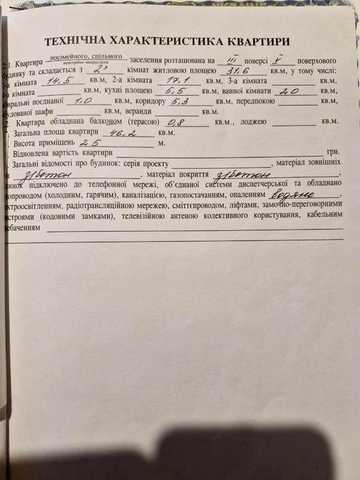 ТЕХНІЧНА ХАРАКТЕРИСТИКА КВАРТИРИ
Квартира посімейного, спільного заселення розташована на III поверсі V поверхового
будинку та складається з 2х кімнат житловою площею 31.6 кв.м, у тому числі:
кімната 14,5 кв.м, 2-а кімната 17,1 кв.м, 3-а кімната кв.м,
кімната кв.м, кухні площею 5,5 кв.м, ванної кімнати 2.0 кв.м,
вбиральні поєднаної 1.0 кв.м, коридору 5,3 кв.м, передпокою кв.м,
вбудованої шафи кв.м, веранди кв.м.
2. Квартира обладнана балконом (терасою) 0,8 кв.м., лоджею кв.м.
Загальна площа квартири 46,2 кв.м.
Висота приміщень 2.5 м.
Відновлена вартість квартири грн.
Загальні відомості про будинок: серія проекту , матеріал зовнішніх
з/бетон , матеріал покриття з/бетон .
Будинок підключено до телефонної мережі, об'єднаної системи диспетчерської та обладнано
водопроводом (холодним, гарячим), каналізацією, газопостачанням, опаленням водяне ,
електроосвітленням, радіотрансляційною мережею, сміттєпроводом, ліфтами, замочно-переговорними
пристроями (кодовими замками), телевізійною антеною колективного користування, кабельним
телебаченням